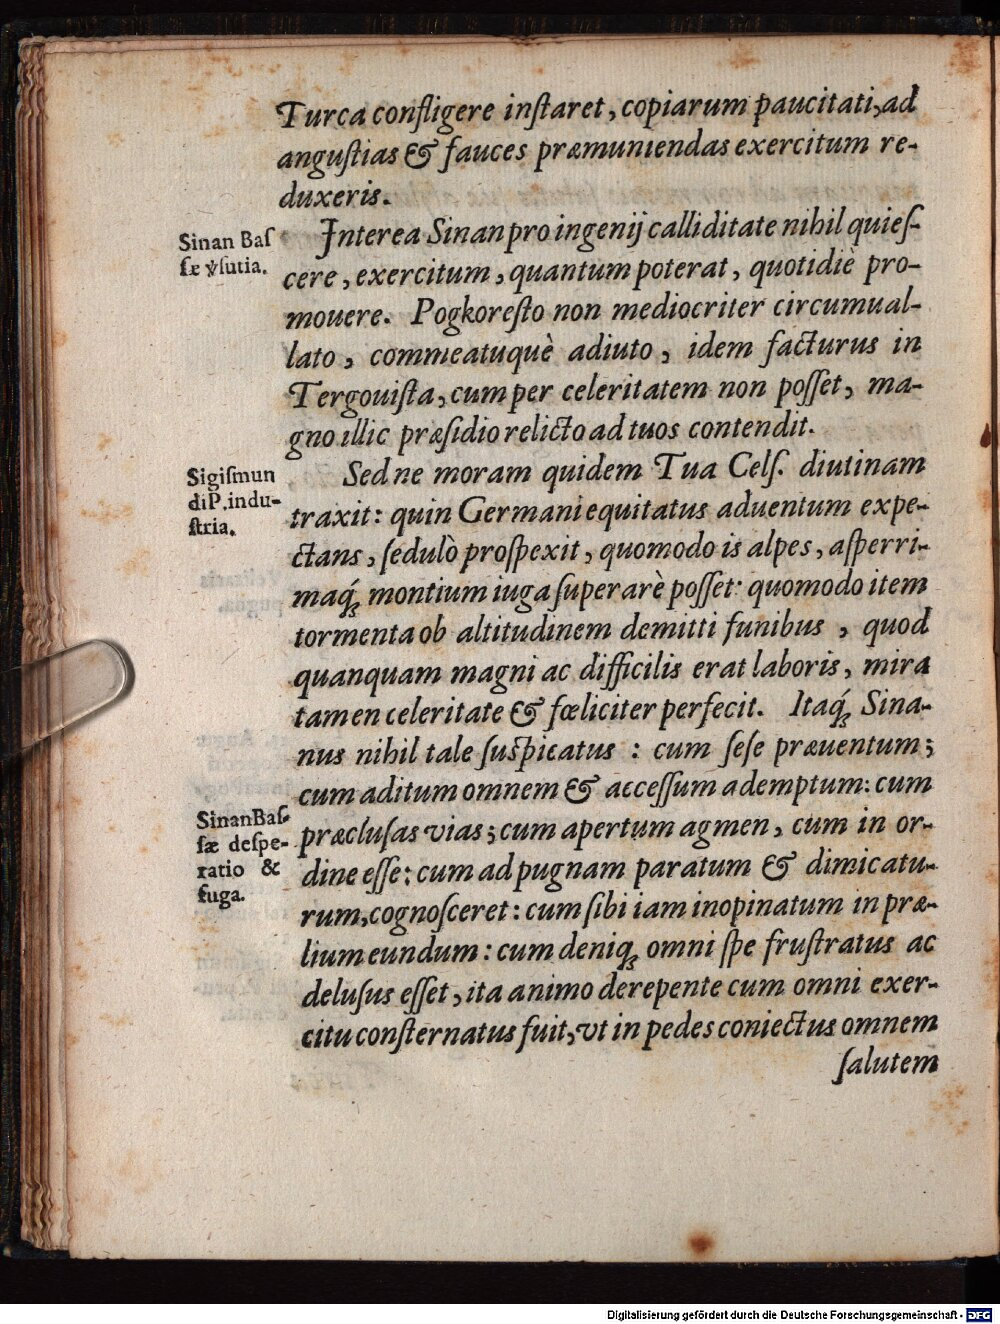 Turca confligere inſtaret, copiarum paucitati, ad
anguſtias & fauces præmuniendas exercitum re-
duxeris.
Interea Sinan pro ingenij calliditate nihil quieſ-
cere, exercitum, quantum poterat, quotidiè pro-
mouere. Pogkoreſto non mediocriter circumual-
lato, commeatuquè adiuto, idem facturus in
Tergouiſta, cum per celeritatem non poſſet, ma-
gno illic præſidio relicto ad tuos contendit.
Sed ne moram quidem Tua Celſ. diutinam
traxit: quin Germani equitatus aduentum expe-
ctans, ſedulò proſpexit, quomodo is alpes, aſperri-
maq́ꝫ montium iuga ſuperarè poſſet: quomodo item
tormenta ob altitudinem demitti funibus, quod
quanquam magni ac difficilis erat laboris, mira
tamen celeritate & fœliciter perfecit. Itaq́ꝫ Sina-
nus nihil tale ſuſpicatus: cum ſeſe præuentum;
cum aditum omnem & acceſſum ademptum: cum
præcluſas vias; cum apertum agmen, cum in or-
dine eſſe: cum ad pugnam paratum & dimicatu-
rum, cognoſceret: cum ſibi iam inopinatum in præ-
lium eundum: cum deniqꝫ omni ſpe fruſtratus ac
deluſus eſſet, ita animo derepente cum omni exer-
citu conſternatus fuit, vt in pedes coniectus omnem
ſalutem
Sinan Baſ
ſæ vſutia.
Sigiſmun
di P. indu-
ſtria.
Sinan Baſ-
ſæ deſpe-
ratio &
fuga.
Digitalisierung gefördert durch die Deutsche Forschungsgemeinschaft - DFG